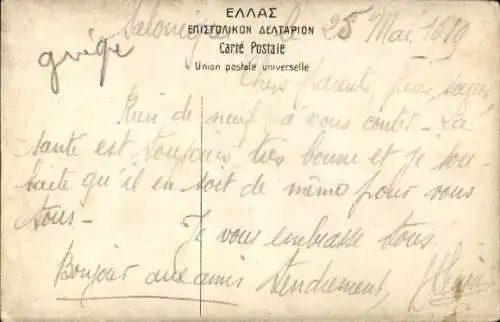 ΕΛΛΑΣ
ΕΠΙΣΤΟΛΙΚΟΝ ΔΕΛΤΑΡΙΟΝ
Carte Postale
Union postale universelle
Salonique le 25 Mai 1919
Chers Parents, frère, sœurs,
Rien de neuf à vous conter - La
santé est toujours très bonne et je sou-
haite qu'il en soit de même pour vous
tous -
Je vous embrasse tous
Bonjour aux amis tendrement,